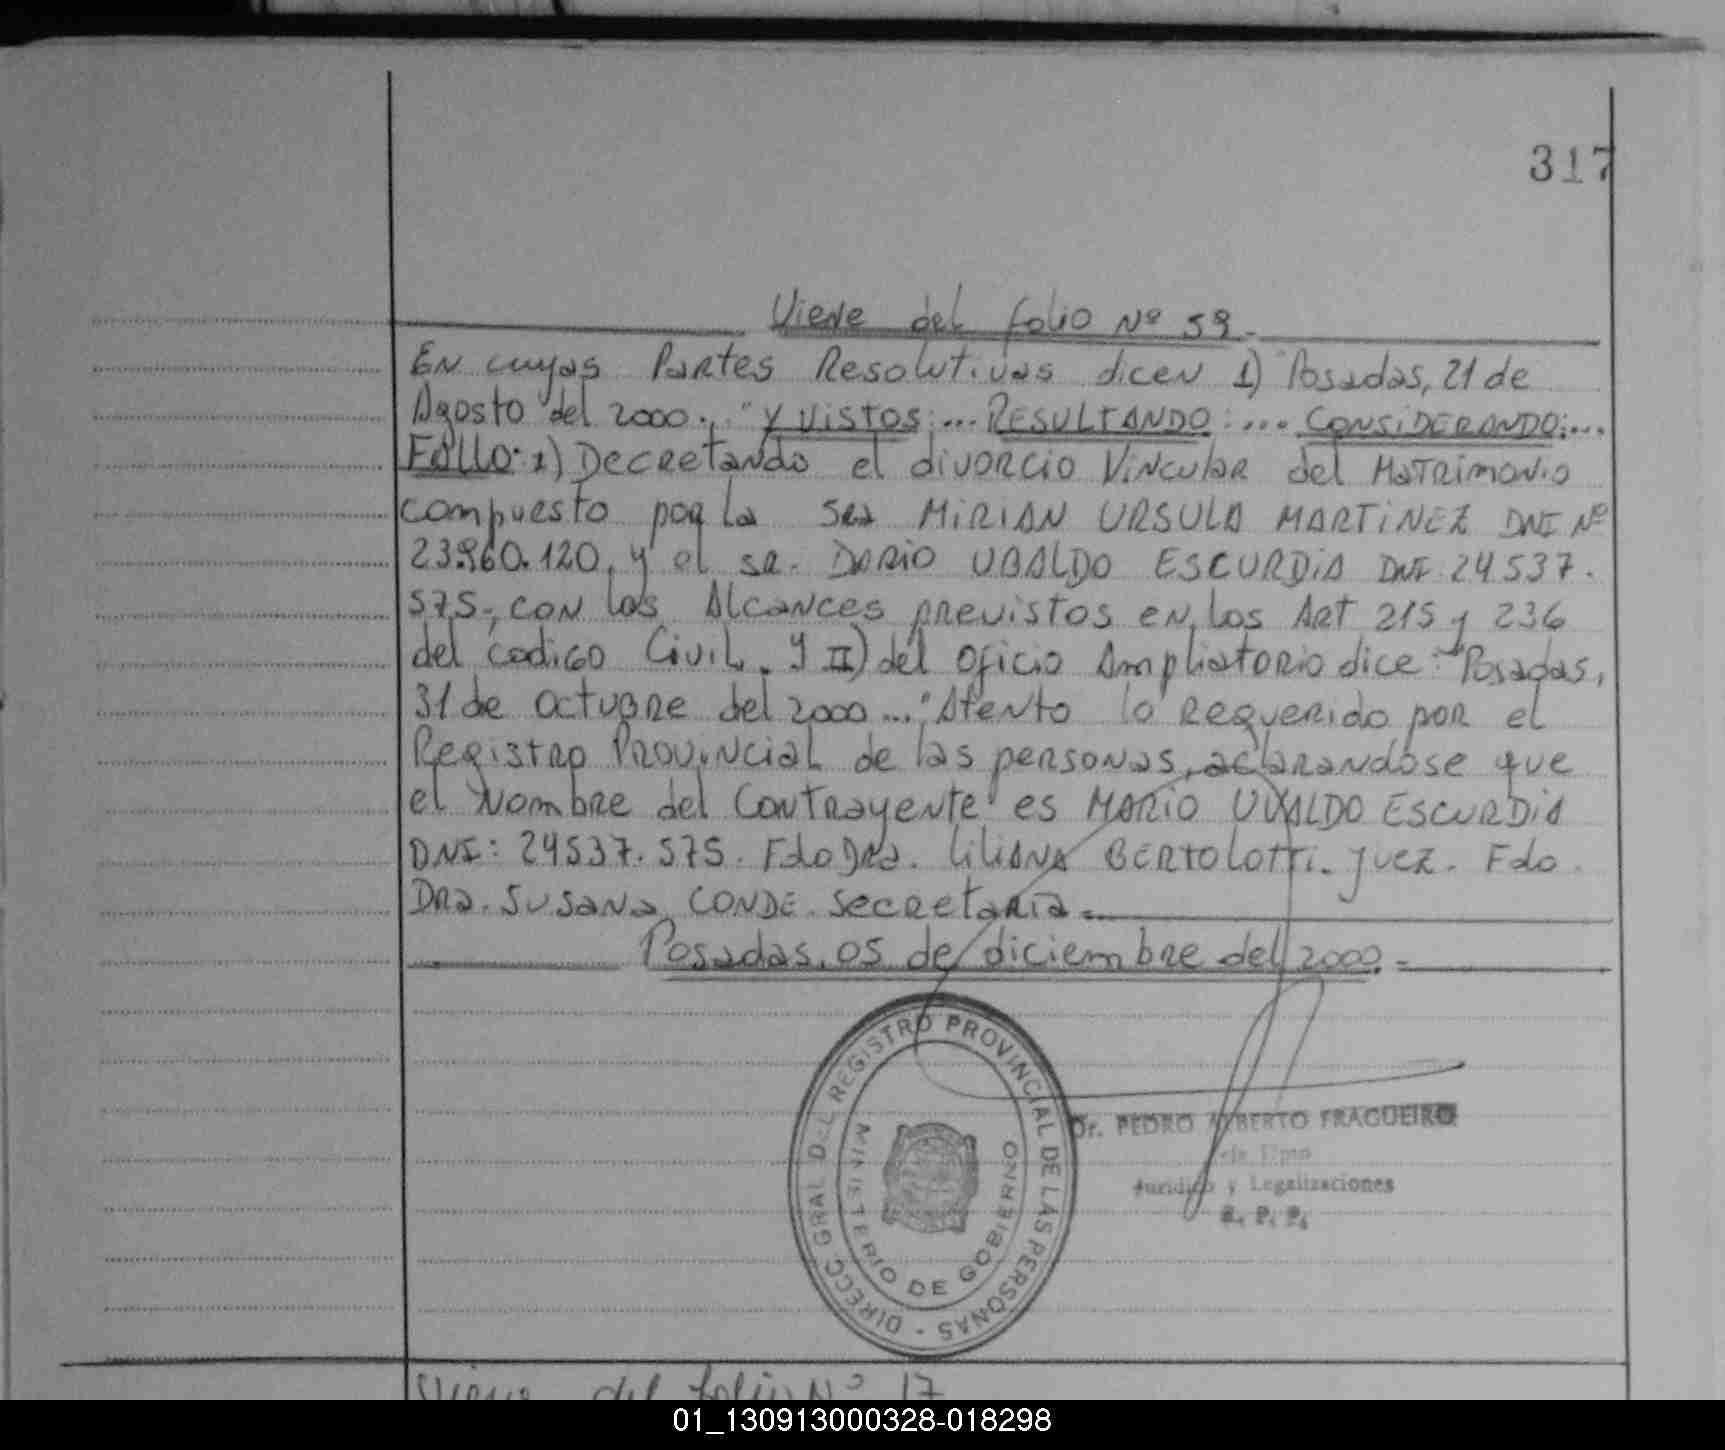 317
Viene del folio Nº 59.
En cuyas Partes Resolutivas dicen 1) Posadas, 21 de
Agosto del 2000... "Y VISTOS:... RESULTANDO:... CONSIDERANDO:...
Fallo: 1) Decretando el divorcio Vincular del Matrimonio
compuesto por la Sra MIRIAN URSULA MARTINEZ DNI Nº
23.960.120, y el Sr. DARIO UBALDO ESCURDIA DNI 24.537.
575-, con los Alcances previstos en los Art 215 y 236
del codigo Civil. Y II) del oficio Ampliatorio dice: "Posadas,
31 de octubre del 2000... "Atento lo requerido por el
Registro Provincial de las personas, aclarandose que
el Nombre del Contrayente es MARIO UVALDO ESCURDIA
DNI: 24537.575. Fdo Dra. LILIANA BERTOLOTTI. Juez. Fdo.
Dra. Susana CONDE. Secretaria.=
Posadas, 05 de diciembre del 2000.=
DIRECC GRAL DEL REGISTRO PROVINCIAL DE LAS PERSONAS -
MINISTERIO DE GOBIERNO
Dr. PEDRO ALBERTO FRAGUEIRO
Jurídico y Legalizaciones
R. P. P.
Viene del folio Nº 17
01_130913000328-018298